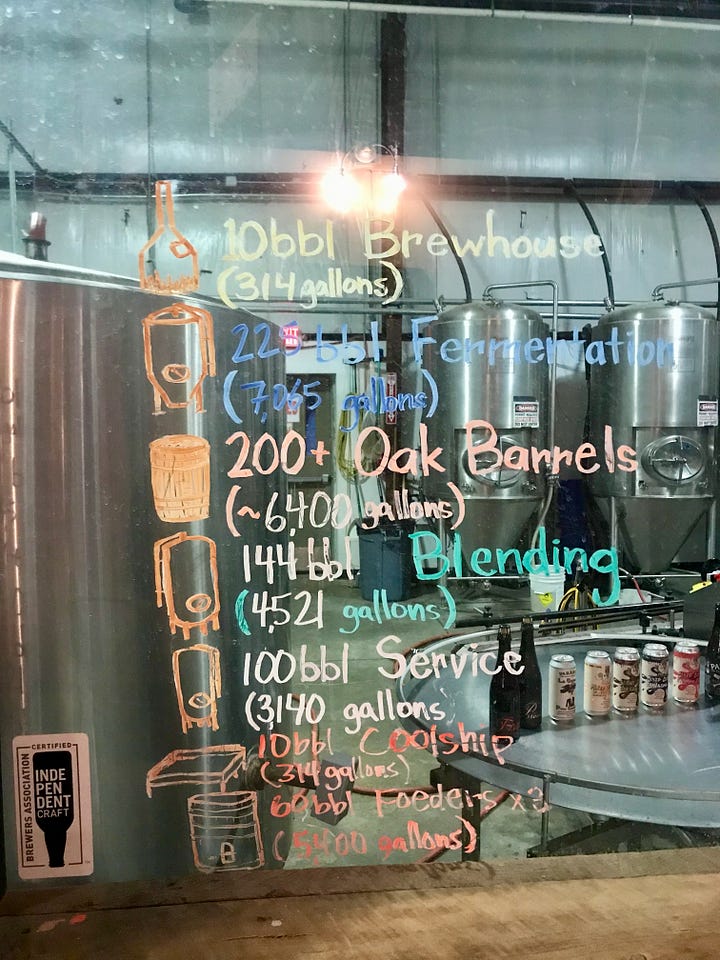 10bbl Brewhouse
(314 gallons)
225 bbl Fermentation
(7,065 gallons)
200+ Oak Barrels
(~6,400 gallons)
144 bbl Blending
(4,521 gallons)
100bbl Service
(3,140 gallons
10bbl Coolship
(314 gallons)
60bbl Foeders x3
(5,400 gallons)
CERTIFIED
BREWERS ASSOCIATION
INDE
PEN
DENT
CRAFT
DANGER
DANGER